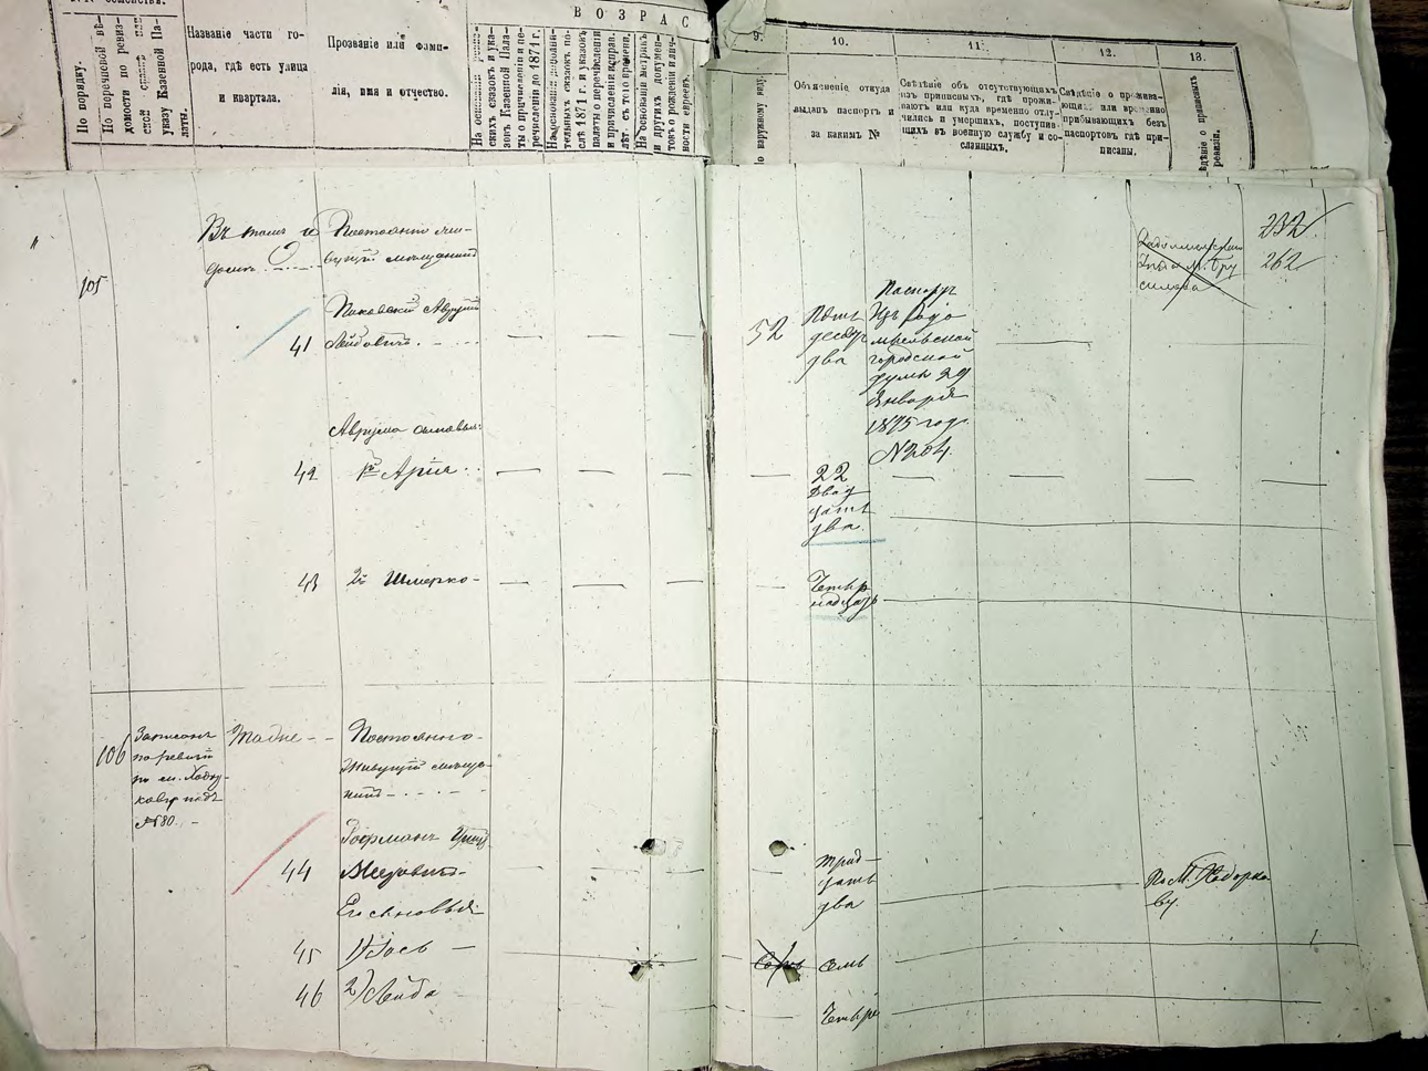 ВОЗРАС
По порядку.
По перечневой вѣ-
домости по ревиз-
ской сказкѣ или
указу Казенной Па-
латы.
Названіе части го-
рода, гдѣ есть улица
и квартала.
Прозваніе или фами-
лія, имя и отчество.
На основаніи ревиз-
скихъ сказокъ и ука-
зовъ Казенной Пала-
ты о причисленіи и пе-
речисленіи до 1871 г.
На основаніи дополни-
тельныхъ сказокъ по-
слѣ 1871 г. и указовъ
палаты о перечисленіи
и причисленіи исправ.
лѣт. съ того времени.
На основаніи метрикъ
и другихъ докумен-
товъ о рожденіи и лич-
ности евреевъ.
9.
По наружному виду.
10.
Объясненіе откуда
выданъ паспортъ и
за какимъ №
11.
Свѣдѣніе объ отсутствующихъ
изъ приписныхъ, гдѣ прожи-
ваютъ или куда временно отлу-
чились и умершихъ, поступив-
щихъ въ военную службу и со-
сланныхъ.
12.
Свѣдѣніе о прожива-
ющихъ или временно
прибывающихъ безъ
паспортовъ гдѣ при-
писаны.
13.
ѣдѣніе о приписныхъ
ревизіи.
105
Въ томъ же
домѣ
Постоянно жи-
вущій мѣщанинъ
232
262
41
Аврумъ
Лейбовичъ
52
Пять
десятъ
два
Паспортъ
Изъ Радо
мысльской
городской
думы 29
Января
1875 года
№ 204.
Аврума сыновья:
42
1й Арія
22
Двад
цать
два
43
2й Шмерко
Четыр
надцать
106
Записанъ
по ревизіи
№ 80.
Постоянно
Живущій мѣща-
нинъ
44
Гофманъ
Мееровичъ
трид
цать
два
По М.
Его сыновья
45
1) Іось
семь
46
2) Лейба
Четыре